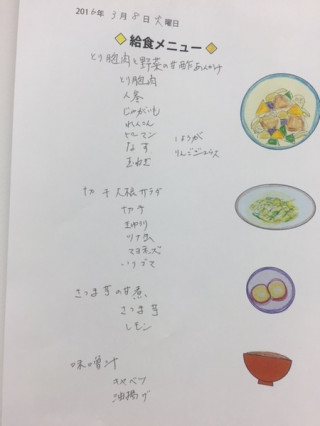 2016年 3月 8日 火曜日
給食メニュー
とり胸肉と野菜の甘酢あんかけ
とり胸肉
人参
じゃがいも
れんこん
ピーマン しょうが
なす りんごジュース
玉ねぎ
切干大根サラダ
切干
きゅうり
ツナ缶
マヨネーズ
いりゴマ
さつま芋の甘煮
さつま芋
レモン
味噌汁
キャベツ
油揚げ